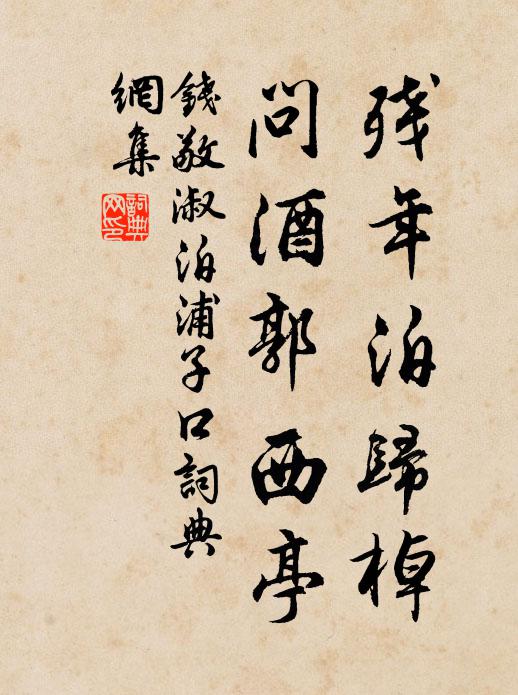 残年泊歸棹
問酒郭西亭
錢敬淑泊浦子口詞典
網集
詞典
网印